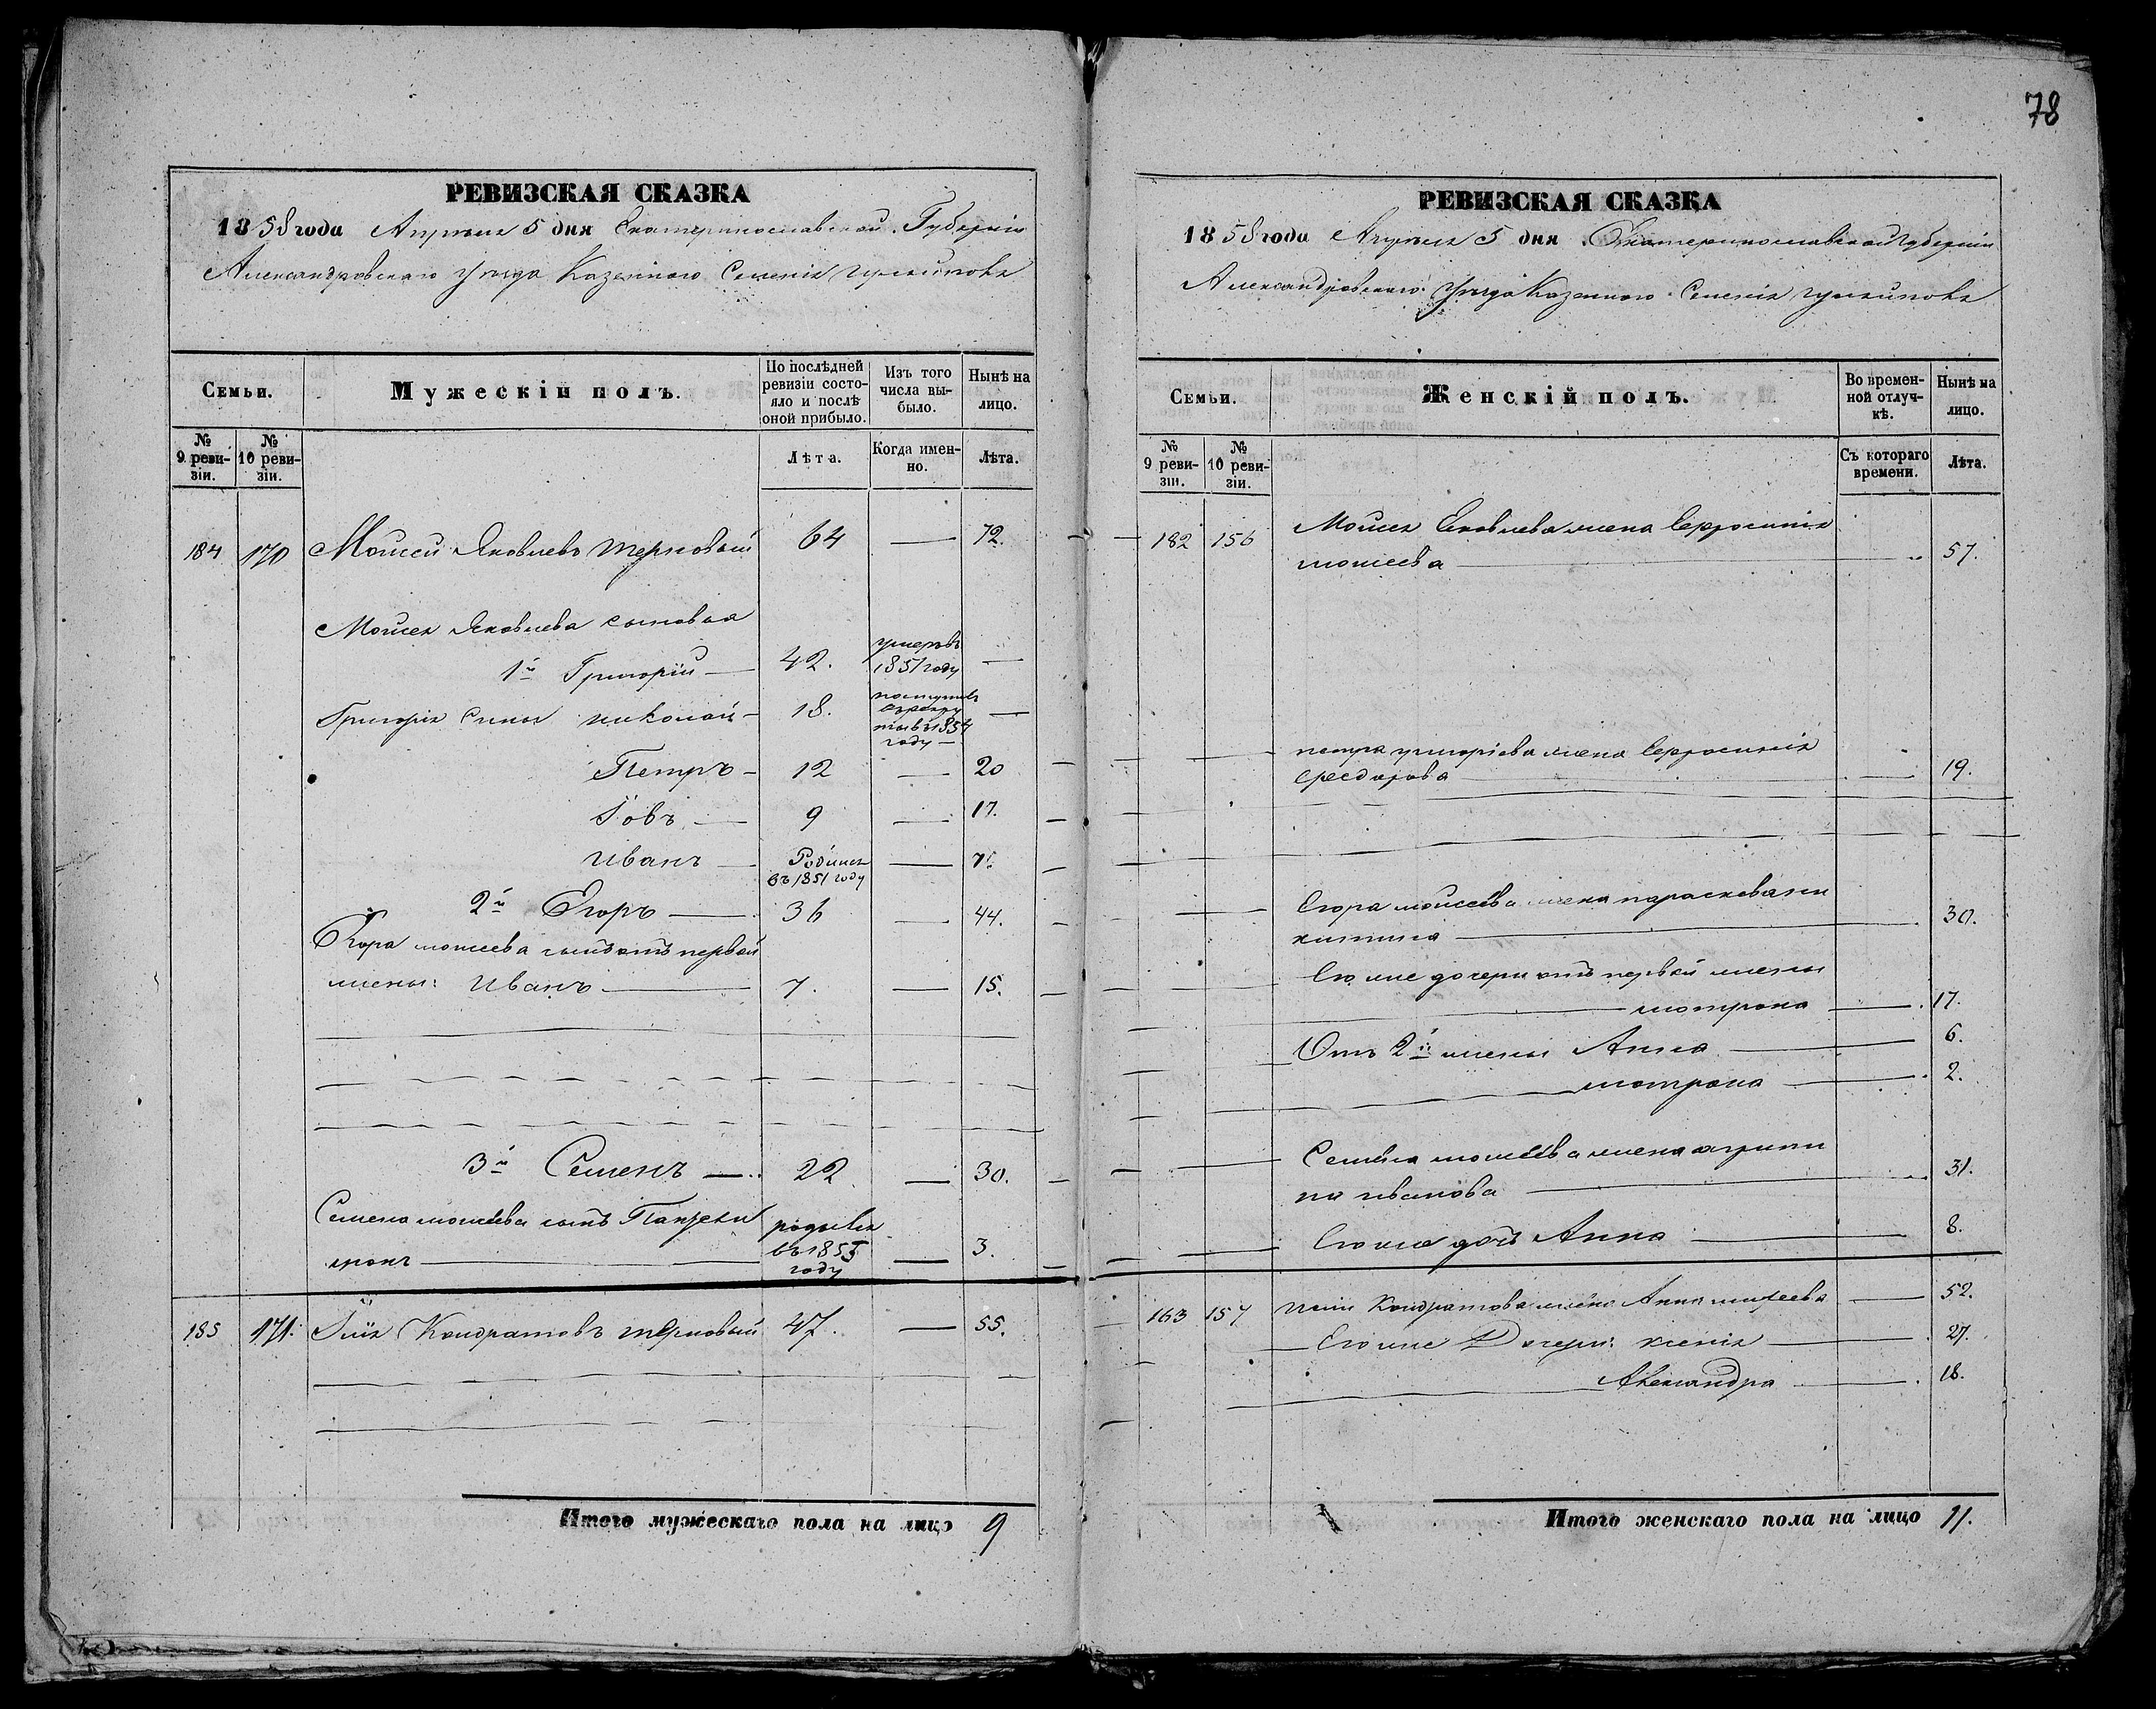 78
РЕВИЗСКАЯ СКАЗКА
1858 года Апреля 5 дня Екатеринославской Губернiи
Александровскаго Уѣзда Казеннаго Селенiя
Семьи.
Мужескiй полъ.
По послѣдней ревизiи состо-
яло и послѣ
оной прибыло.
Изъ того
числа вы-
было.
Нынѣ на
лицо.
№
9 реви-
зiи.
№
10 реви-
зiи.
Лѣта.
Когда имен-
но.
Лѣта.
184 170 Моисей Яковлевъ Терновый 64 — 72.
Моисея Яковлева сыновья
1й Григорiй — 42. умеръ въ 1851 году —
Григорiя сины николай — 18. поступилъ въ рекруты въ 1854 году —
Петръ — 12 — 20
Iовъ — 9 — 17.
Иванъ — Родился въ 1851 году — 7.
2й Егоръ — 36 — 44.
Егора моисеева сынъ отъ первой
жены: Иванъ — 7. — 15.
3й Семенъ — 22 — 30.
Семена моисеева сынъ Пантели
монъ — родился въ 1855 году — 3.
185 171. Iлiя Кондратовъ терновый 47. — 55.
Итого мужескаго пола на лицо 9
РЕВИЗСКАЯ СКАЗКА
1858 года Апреля 5 дня Екатеринославской Губернiи
Александровскаго Уѣзда Казенного Селенiя
Семьи.
Женскiй полъ.
Во времен-
ной отлуч-
кѣ.
Нынѣ на
лицо.
№
9 реви-
зiи.
№
10 реви-
зiи.
Съ котораго
времени.
Лѣта.
182 156 Моисея Яковлева жена Ефросинiя
моисеева — 57.
петра григорiева жена Ефросинiя
федорова — 19.
Егора моисеева жена парасковая ни
китина — 30.
Его же дочери отъ первой жены
мотрона — 17.
Отъ 2й жены Анна — 6.
мотрона — 2.
Семена моисеева жена агрипи
на иванова — 31.
Его же дочь Анна — 8.
163 157 Илiи Кондратова жена Анна михеева — 52.
Его же Дочери: ксенiя — 27.
Александра — 18.
Итого женскаго пола на лицо 11.